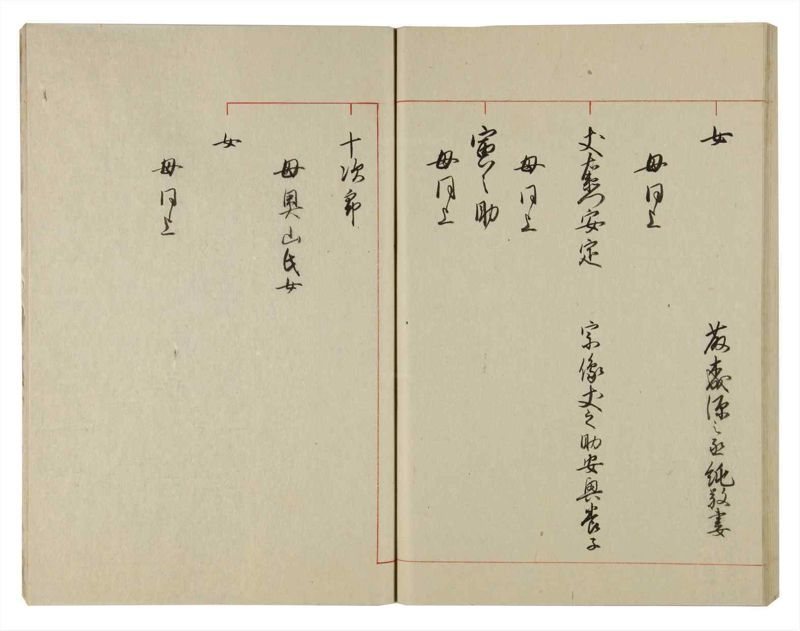 女
母同上
藪森源之丞純敬妻
丈右衛門安定
母同上
宗像丈之助安興養子
寅之助
母同上
十次郎
母奥山氏女
女
母同上